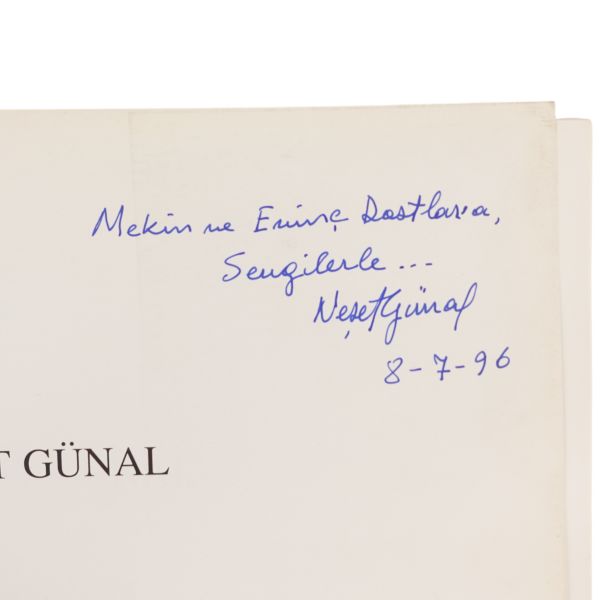 Mekin ve Eninç Dostlara,
Sevgilerle ...
Neşet Günal
8-7-96
T GÜNAL